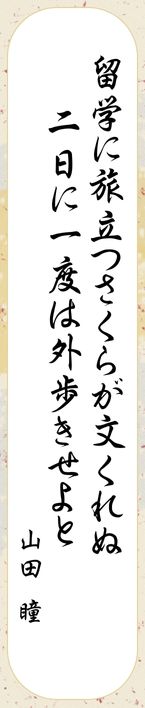 留学に旅立つさくらが文くれぬ
二日に一度は外歩きせよと
山田 瞳